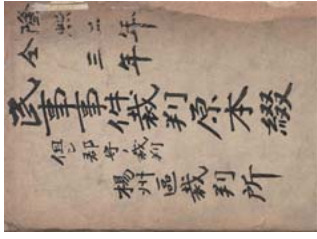 隆熙二年
仝 三年
民事事件裁判原本綴
但シ郡守ノ裁判
楊州區裁判所